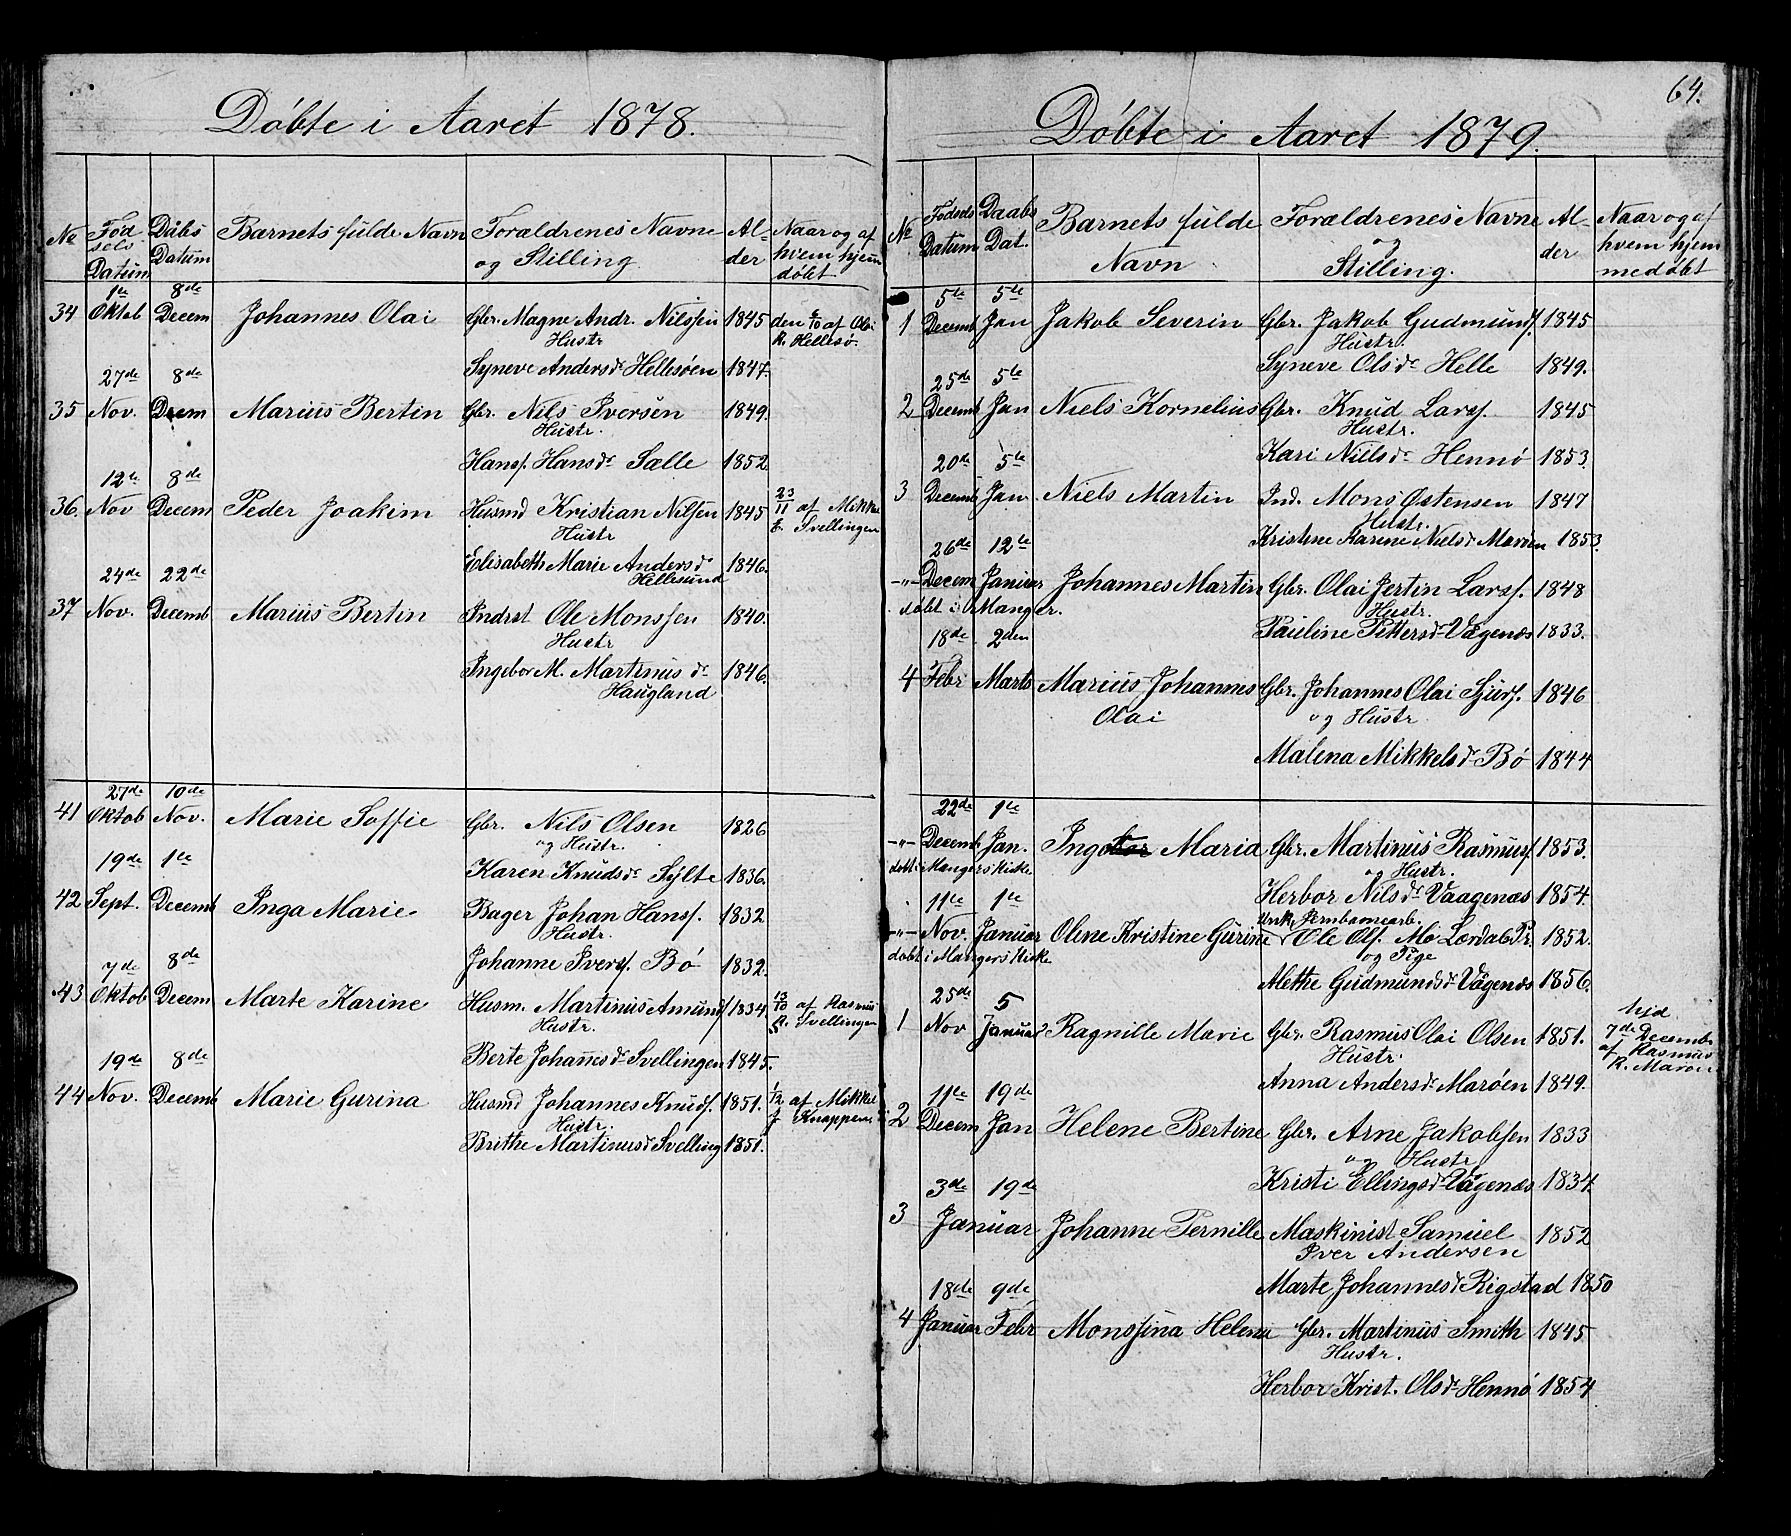 Döbte i Aaret 1878.
No Fødsels Datum Dåbs Datum Barnets fulde Navn Forældrenes Navne og Stilling Alder Naar og af hvem hjemdöbt
34 1te Oktob 8de Decem Johannes Olai Gbr. Magne Andr. Nilssen 1845 den /10 af Oli
Hustr R. Hellesø.
Syneve Andersdr Hellesöen 1847.
35 27de Nov. 8de Decem Marius Bertin Gbr. Nils Iversen 1849.
Hustr.
Hansf. Hansdr Sælle 1852
36. 12te Nov 8de Decem Peder Joakim Husmd Kristian Nilsen 1845 23/11 af Mikkel
Hustr Svellingen
Elisabeth Marie Andersdr 1846.
Hellesund
37 24de Nov. 22de Decemb Marius Bertin Indrst Ole Monssen 1840.
Hustr
Ingebor M. Martinusdr 1846.
Haugland
41 27de Oktob 10de Nov. Marie Soffie Gbr. Nils Olsen 1826
og Hustr.
Karen Knudsdr Sylte 1836.
42 19de Sept. 1te Decemb Inga Marie Bager Johan Hansf. 1832
Hustr.
Johanne Iversf. Bö 1832.
43 7de Oktob 8de Decem Marte Karine Husm. Martinus Amundf 1834. 13/10 af Rasmus
Hustr. R. Svellingen
Berte Johannesdr Svellingen 1845.
44 19de Nov. 8de Decemb Marie Gurina Husmd Johannes Knudsf. 1851. 1/12 af Mikkel
Hustr. J Knappen
Brithe Martinusdr Svelling 1851.
64.
Döbte i Aaret 1879.
No Fødsels Datum Daabs Dat. Barnets fulde Navn Forældrenes Navne og Stilling. Alder Naar og af hvem hjemmedøbt
1 5te Decemb 5te Jan Jakob Severin Gbr. Jakob Gudmundsf. 1845
Hustr.
Syneve Olsdr Helle 1849.
2 25de Decemb 5te Jan Niels Kornelius Gbr. Knud Larsf. 1845
Hustr.
Kari Nilsdr Hennö 1853.
3 20de Decemb 5te Jan Niels Martin Ind. Mons Østensen 1847
Hustr.
Kristine Karine Nielsdr Maröen 1853.
-"- 26de Decem 12te Januar Johannes Martin Gbr. Olai Jertin Larsf. 1848
døbt i Manger. Hustr.
Pauline Pettersdr Vågenes 1833.
4 18de Febr 2den Marts Marius Johannes Gbr. Johannes Olai Sjursf. 1846
Olai og Hustr.
Malena Mikkelsdr Bö 1844
-"- 22de Decemb 1te Jan. Ingebor Maria Gbr. Martinus Rasmusf 1853.
døbt i Mangers Kirke og Hustr.
Herbor Nilsdr Vaagenæs 1854.
Unk. Jernbanearb.
-"- 11te Nov. 1te Januar Olene Kristine Gurine Ole Olsf. Mo Lærdals Pr. 1852.
døbt i Mangers Kirke og Pige
Alethe Gudmundsdr Vågenæs 1856.
1 25de Nov 5 Januar Ragnille Marie Gbr. Rasmus Olai Olsen 1851. hjd.
Hustr. 7de Decemb
Anna Andersdr Maröen 1849. af Rasmus R. Maröen
2 11te Decem 19de Jan Helene Bertine Gbr. Arne Jakobsen 1833
og Hustr
Kristi Ellingsdr Vågenæs 1834.
3 3de 19de Januar Johanne Pernille Maskinist Samuel 1852
Iver Andersen
Marte Johannesdr Rigstad 1850
4 18de Januar 9de Febr Monssina Helena Gbr. Martinus Smith 1845
Hustr.
Herbor Krist. Olsdr Hennö 1854